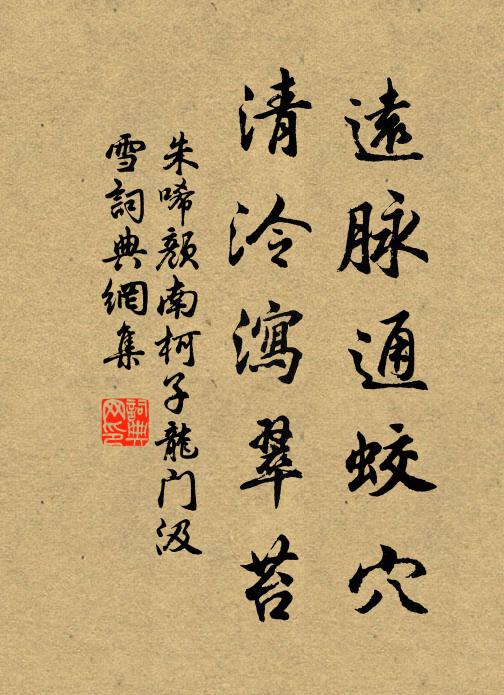 遠脉通蛟穴
清泠瀉翠苔
朱唏顔南柯子龍门汲
雪詞典網集
詞典网印